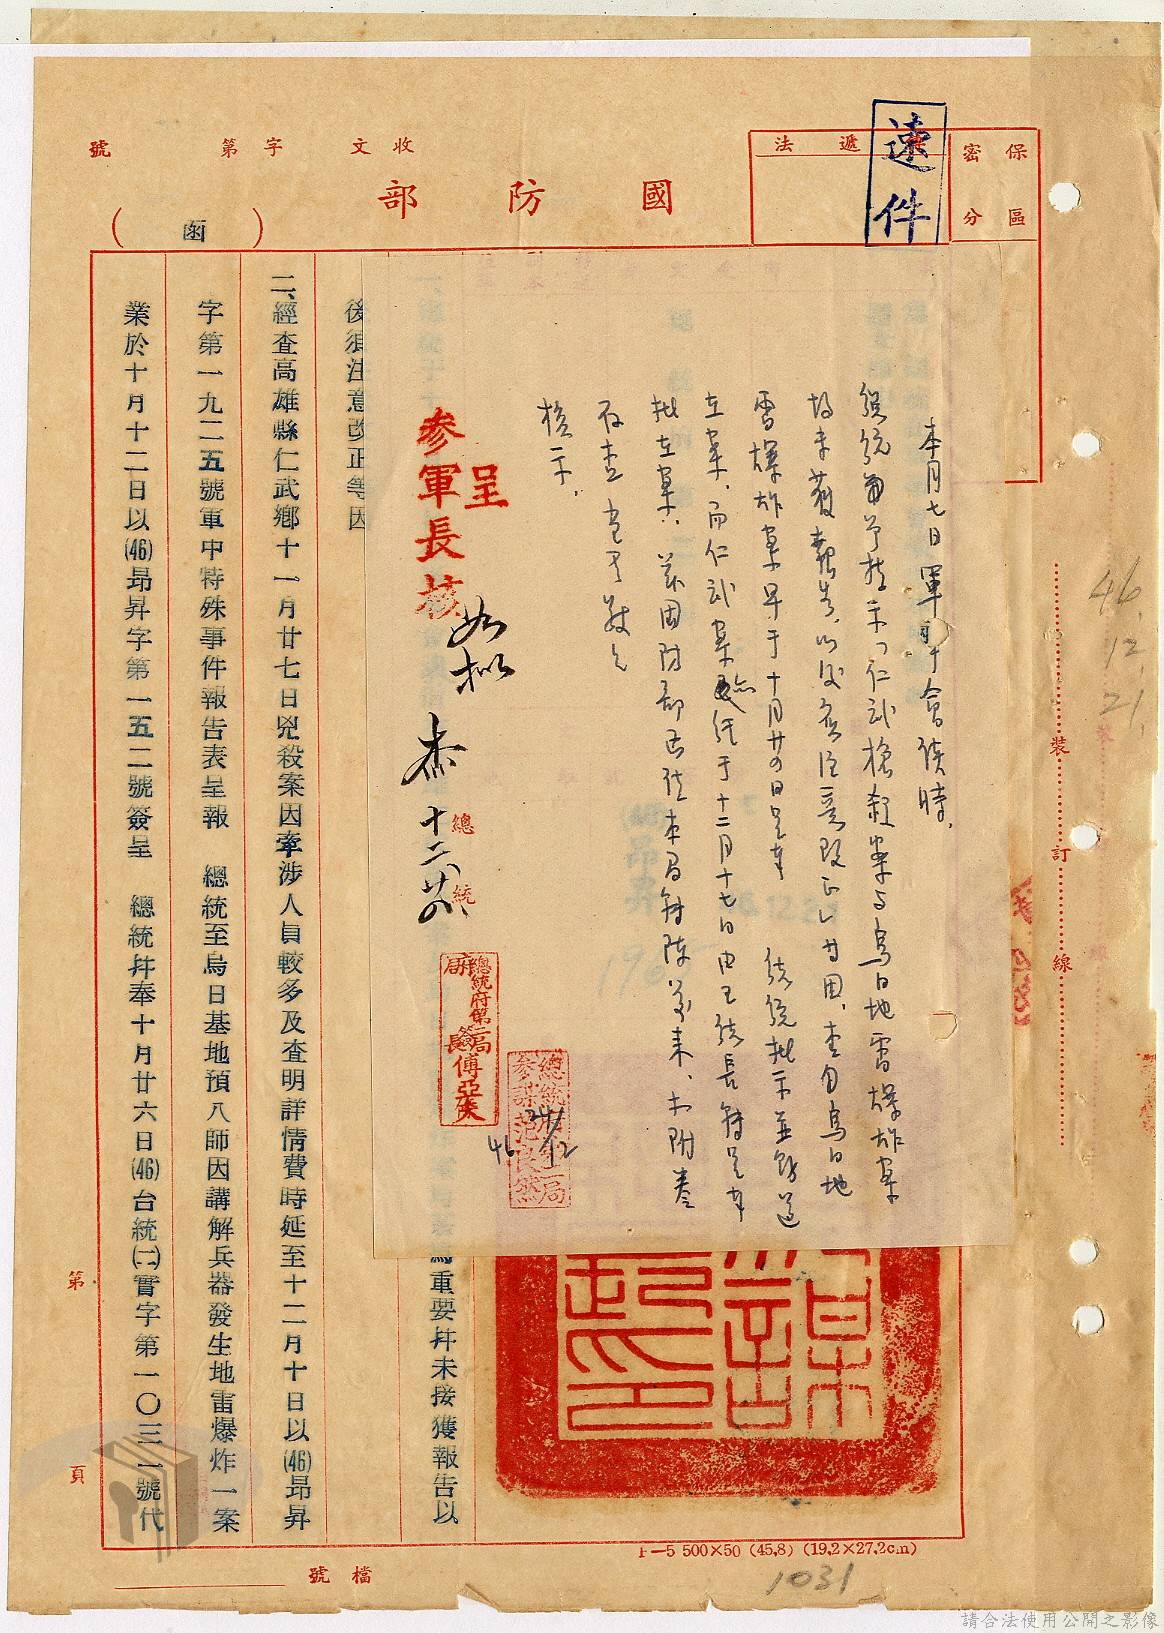 收文 字第 號
國防部
(函)
保密區分
遞法
速件
本月七日軍事會談時，
總統曾予指示「仁武槍殺案与烏日地雷爆炸案
均未獲報告，以後應注意改正」等因，查自烏日地
雷爆炸案早于十月廿四日呈奉 總統批示並飭遵
在案，而仁武案亦經于十二月十七日由王總長簽呈奉
批在案，茲國防部函经本局轉陳前来，擬附卷
存查，當否敬乞
核示。
呈
參軍長核
如擬
杰 十二、廿四
總統
總統府第二局局長傅亞夫
總統府第二局參謀范良然
24/12
46
為重要件未接獲報告以
後須注意改正等因
二、經查高雄縣仁武鄉十一月廿七日兇殺案因牽涉人員較多及查明詳情費時延至十二月十日以(46)昂昇
字第一九二五號軍中特殊事件報告表呈報 總統至烏日基地預八師因講解兵器發生地雷爆炸一案
業於十月十二日以(46)昂昇字第一五二號簽呈 總統并奉十月廿六日(46)台統(二)實字第一〇三一號代
第 頁
裝訂線
46.12.21.
F—5 500×50 (45.8) (19.2×27.2cm)
1031
檔號
請合法使用公開之影像